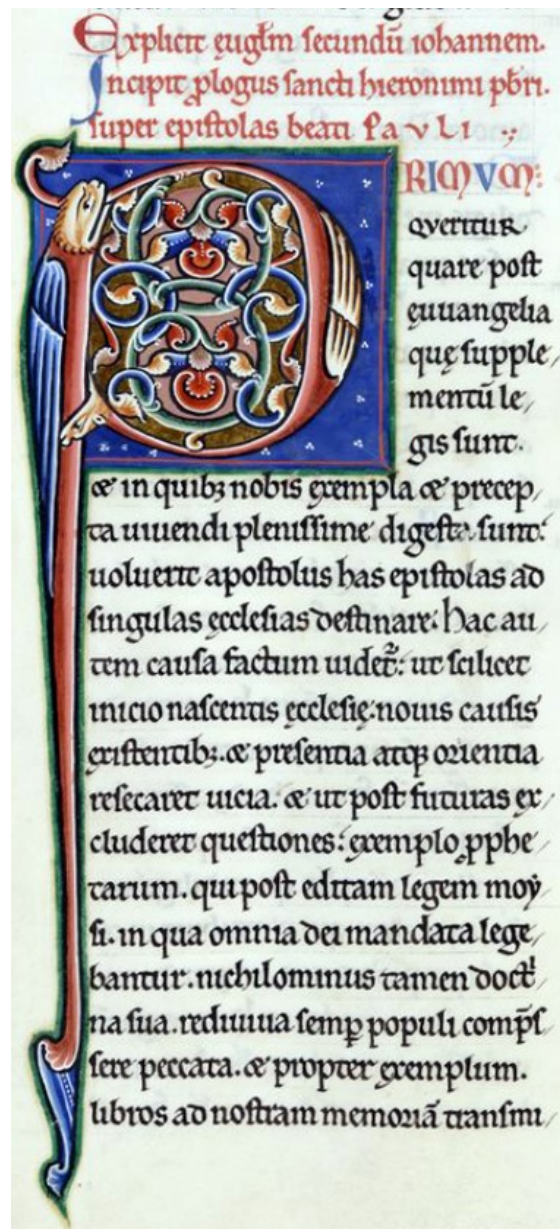 Explicit euglm secundū iohannem.
Incipit plogus sancti hieronimi pbri.
super epistolas beati PAVLI
PRIMVM:
QVERITUR
quare post
ęuuangelia
quę supple
mentū le
gis sunt.
& in quibȝ nobis exempla & precep
ta uiuendi plenissime digesta sunt:
uoluerit apostolus has epistolas ad
singulas ęcclesias destinare: hac au
tem causa factum uidet̄: ut scilicet
inicio nascentis ęcclesię. nouis causis
existentibȝ. & presentia atqȝ orientia
resecaret uicia. & ut post futuras ex
cluderet questiones: exemplo pphe
tarum. qui post editam legem moẏ
si. in qua omnia dei mandata lege
bantur. nichilominus tamen doctⁱ
na sua. rediuiua semp populi comp̄s
sere peccata. & propter exemplum.
libros ad nostram memoriā transmi